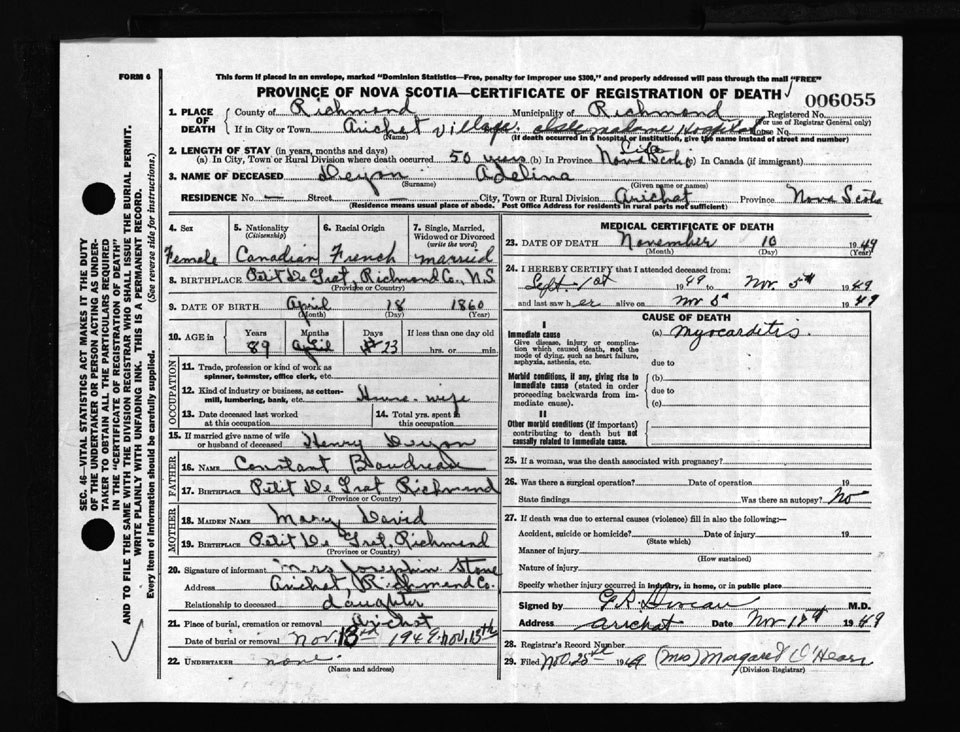 FORM 6
This form if placed in an envelope, marked "Dominion Statistics—Free, penalty for improper use $300," and properly addressed will pass through the mail "FREE"
PROVINCE OF NOVA SCOTIA—CERTIFICATE OF REGISTRATION OF DEATH
006055
1. PLACE OF DEATH
County of Richmond Municipality of Richmond Registered No.
(For use of Registrar General only)
If in City or Town Arichat Village Hospital House No.
(Name) (If death occurred in a hospital or institution, give the name instead of street and number)
2. LENGTH OF STAY (in years, months and days)
(a) In City, Town or Rural Division where death occurred 50 years (b) In Province Life Nova Scotia (c) In Canada (if immigrant)
3. NAME OF DECEASED Deyon Adelina
(Surname) (Given name or names)
RESIDENCE No. — Street — City, Town or Rural Division Arichat Province Nova Scotia
(Residence means usual place of abode. Post Office Address for residents in rural parts not sufficient)
4. Sex 5. Nationality (Citizenship) 6. Racial Origin 7. Single, Married, Widowed or Divorced (write the word)
Female Canadian French married
8. BIRTHPLACE Petit De Grat, Richmond Co., N.S
(Province or Country)
9. DATE OF BIRTH April 18 1860
(Month) (Day) (Year)
10. AGE in Years Months Days If less than one day old
89 April 23 hrs. or min.
OCCUPATION
11. Trade, profession or kind of work as spinner, teamster, office clerk, etc.
12. Kind of industry or business, as cotton-mill, lumbering, bank, etc. House-wife
13. Date deceased last worked at this occupation
14. Total yrs. spent in this occupation
15. If married give name of wife or husband of deceased Henry Deyon
FATHER
16. NAME Constant Boudreau
17. BIRTHPLACE Petit De Grat Richmond
(Province or Country)
MOTHER
18. MAIDEN NAME Mary David
19. BIRTHPLACE Petit De Grat, Richmond
(Province or Country)
20. Signature of informant Mrs Josephine Stone
Address Arichat, Richmond Co.
Relationship to deceased daughter
21. Place of burial, cremation or removal Arichat
Date of burial or removal Nov. 13th 1949. Nov. 13th
22. UNDERTAKER none.
(Name and address)
MEDICAL CERTIFICATE OF DEATH
23. DATE OF DEATH November 10 1949
(Month) (Day) (Year)
24. I HEREBY CERTIFY that I attended deceased from:
Sept. 1st 1949 to Nov. 5th 1949
and last saw her alive on Nov 5th 1949
CAUSE OF DEATH
I
Immediate cause (a) Myocarditis.
Give disease, injury or complication which caused death, not the mode of dying, such as heart failure, asphyxia, asthenia, etc.
due to
Morbid conditions, if any, giving rise to immediate cause (stated in order proceeding backwards from immediate cause).
(b)
due to
(c)
II
Other morbid conditions (if important) contributing to death but not causally related to immediate cause.
25. If a woman, was the death associated with pregnancy?
26. Was there a surgical operation? Date of operation 19
State findings Was there an autopsy? No
27. If death was due to external causes (violence) fill in also the following:—
Accident, suicide or homicide? Date of injury 19
(State which)
Manner of injury
(How sustained)
Nature of injury
Specify whether injury occurred in industry, in home, or in public place
Signed by M.D.
Address Arichat Date Nov 1949
28. Registrar's Record Number
29. Filed Nov. 25th 1949 (Mrs) Margaret O'Hearn
(Division Registrar)
SEC. 46—VITAL STATISTICS ACT MAKES IT THE DUTY
OF THE UNDERTAKER OR PERSON ACTING AS UNDER-
TAKER TO OBTAIN ALL THE PARTICULARS REQUIRED
IN THE "CERTIFICATE OF REGISTRATION OF DEATH"
AND TO FILE THE SAME WITH THE DIVISION REGISTRAR WHO SHALL ISSUE THE BURIAL PERMIT.
WRITE PLAINLY WITH UNFADING INK. THIS IS A PERMANENT RECORD.
Every item of information should be carefully supplied. (See reverse side for instructions.)